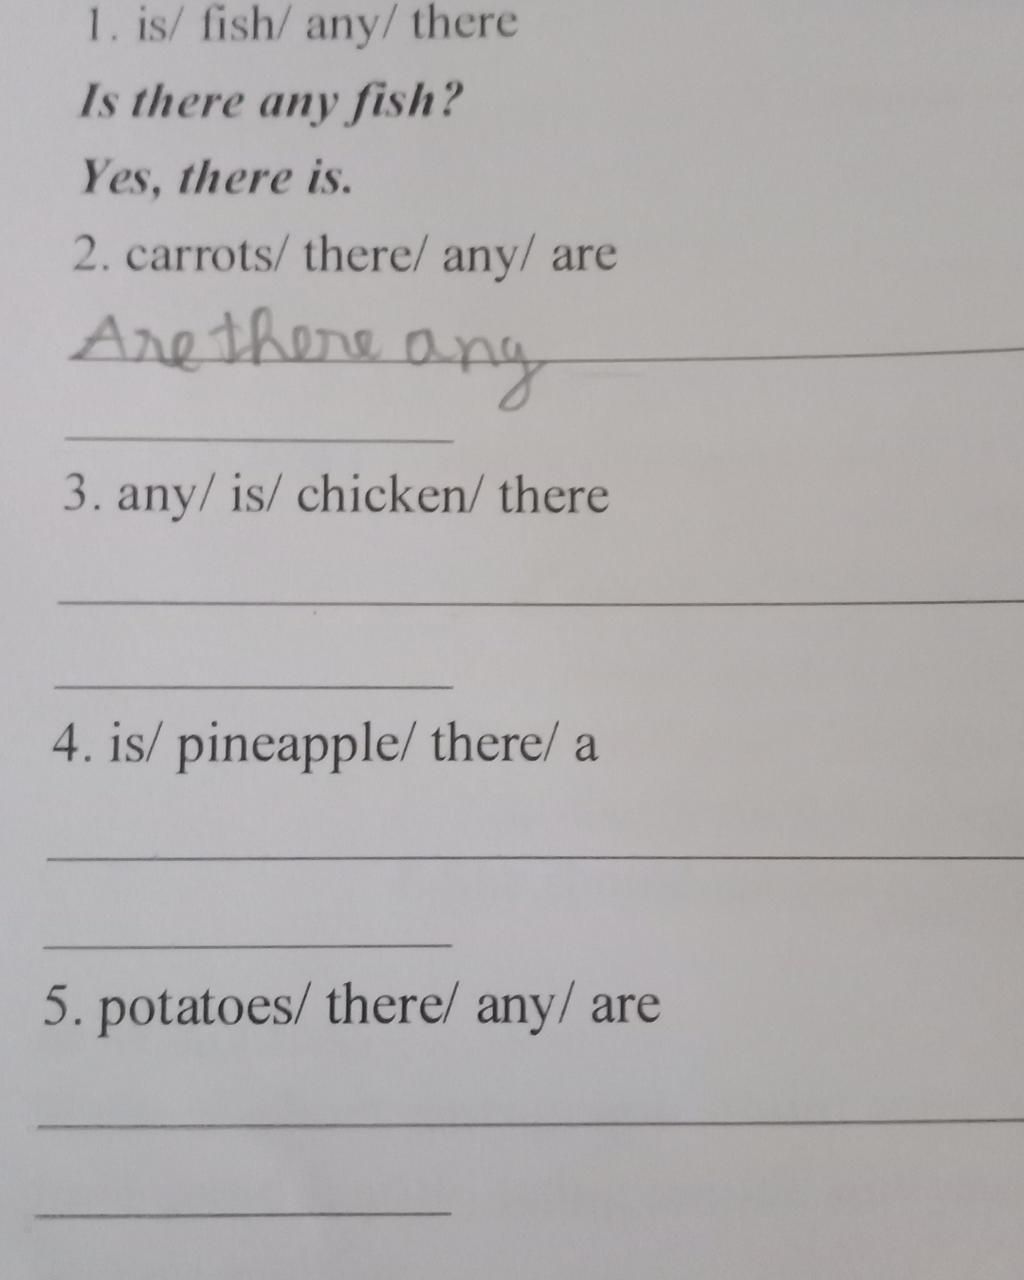 1. is/ fish/ any/ there
Is there any fish?
Yes, there is.
2. carrots/ there/ any/ are
Are there any
3. any/ is/ chicken/ there
4. is/ pineapple/ there/ a
5. potatoes/ there/ any/ are